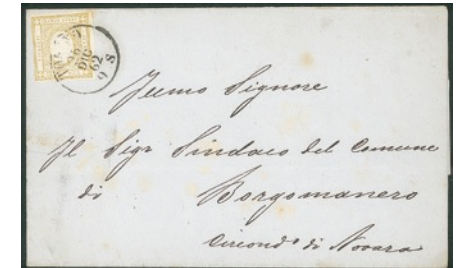 26
DIC
62
9 S
Illmo Signore
Il Sigr Sindaco del Comune
di Borgomanero
Circondo di Novara